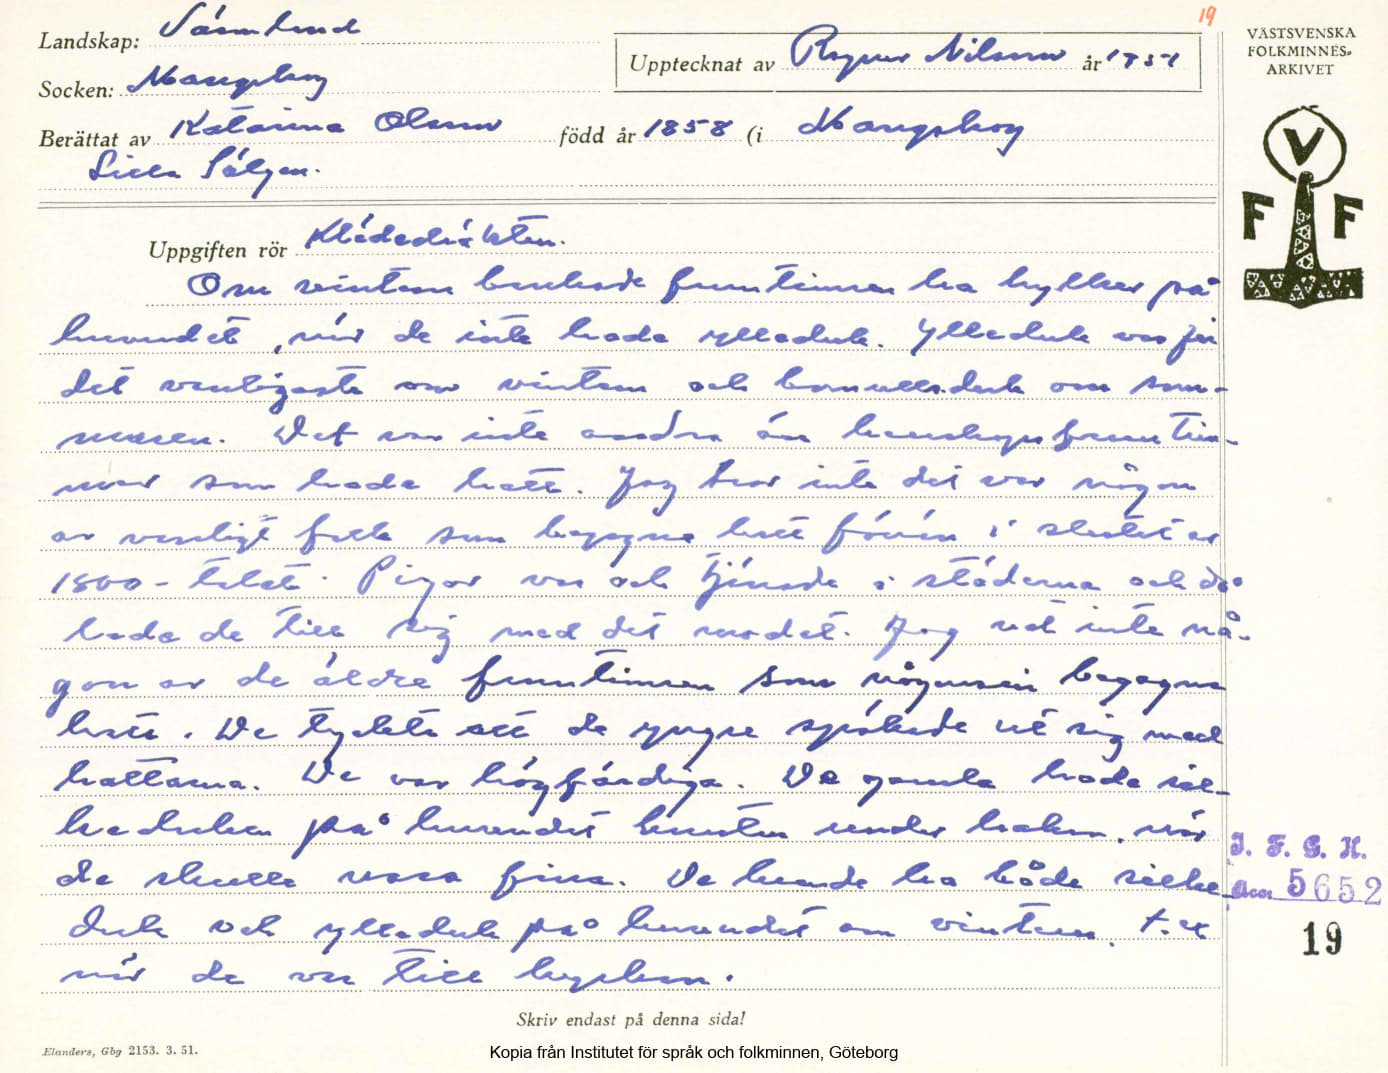 19
Landskap: Värmland
VÄSTSVENSKA
FOLKMINNES-
ARKIVET
Upptecknat av Ragnar Nilsson år 1951
Socken: Mangskog
Berättat av Katarina Olsson född år 1858 (i Mangskog
Lilla Sälgen.
V
F F
Uppgiften rör Klädedräkten.
Om vintern brukade fruntimren ha hylker på
huvudet, när de inte hade ylleduk. Ylleduk var för
det vanligaste om vintern och bomullsduk om som-
maren. Det var inte andra än herrskapsfruntim-
mer som hade hatt. Jag tror inte det var någon
av vanligt folk som begagna hatt förrän i slutet av
1800-talet. Pigor var och tjänade i städerna och då
hade de till sig med det modet. Jag vet inte nå-
gon av de äldre fruntimren som någonsin begagna
hatt. De tyckte att de yngre spökade ut sig med
hattarna. De var högfärdiga. De gamla hade sil-
keduken på huvudet knuten under hakan, när
de skulle vara fina. De kunde ha både silke
duk och ylleduk på huvudet om vintern, t.ex
när de var till kyrkan.
I. F. G. H.
Acc. 5652
19
Skriv endast på denna sida!
Elanders, Gbg 2153. 3. 51.
Kopia från Institutet för språk och folkminnen, Göteborg